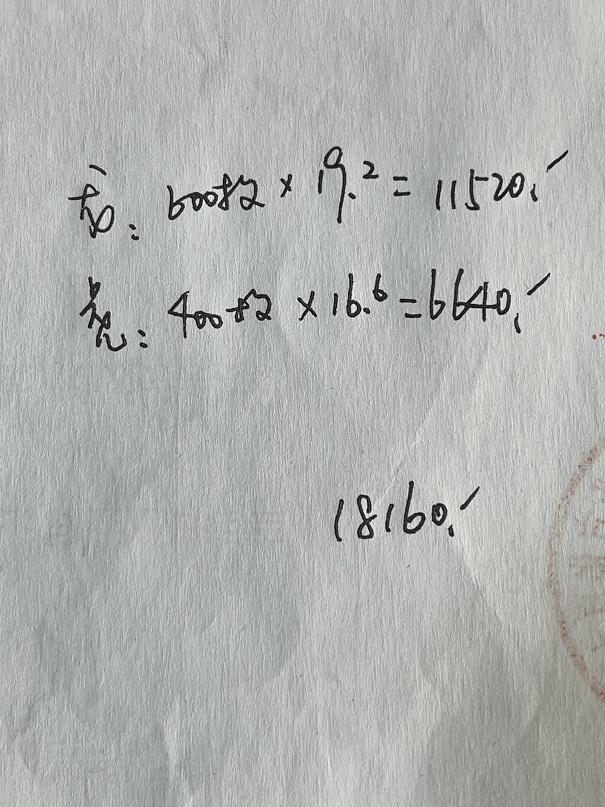 600枚 × 19.2 = 11520.
400枚 × 16.6 = 6640.
18160.